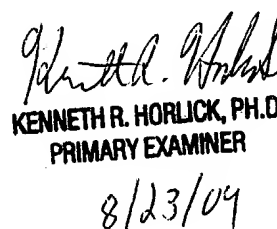 Kenneth R. Horlick
KENNETH R. HORLICK, PH.D
PRIMARY EXAMINER
8/23/04